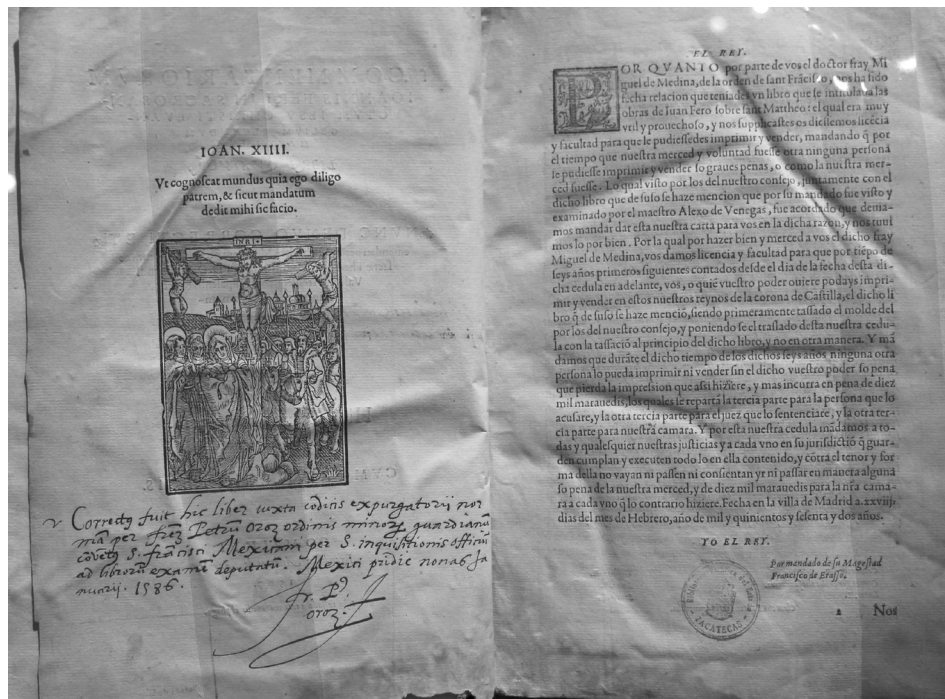 IOAN. XIIII.
Vt cognoscat mundus quia ego diligo
patrem, & sicut mandatum
dedit mihi sic facio.
INRI
Correctus fuit hic liber iuxta codicis expurgatorij nor
mā per frēz Petrum Oroz ordinis minorū guardianū
cōvētus S. francisci Mexicani per S. inquisitionis officiū
ad librorum examē deputatū. Mexici pridie nonas Ja
nuarij. 1586.
fr. P.º
oroz.
EL REY.
POR QVANTO por parte de vos el doctor fray Mi
guel de Medina, de la orden de sant Frācisco, nos ha sido
fecha relacion que teniades vn libro que se intitulaua las
obras de Iuan Fero sobre sant Mattheo: el qual era muy
vtil y prouechoso, y nos supplicastes os diessemos licēcia
y facultad para que le pudiessedes imprimir y vender, mandando q̄ por
el tiempo que nuestra merced y voluntad fuesse otra ninguna persona
le pudiesse imprimir y vender so graues penas, o como la nuestra mer-
ced fuesse. Lo qual visto por los del nuestro consejo, juntamente con el
dicho libro que de suso se haze mencion que por su mandado fue visto y
examinado por el maestro Alexo de Venegas, fue acordado que deuia-
mos mandar dar esta nuestra carta para vos en la dicha razon, y nos tuui
mos lo por bien. Por la qual por hazer bien y merced a vos el dicho fray
Miguel de Medina, vos damos licencia y facultad para que por tiēpo de
seys años primeros siguientes contados desde el dia de la fecha desta di-
cha cedula en adelante, vos, o quiē vuestro poder ouiere podays impri-
mir y vender en estos nuestros reynos de la corona de Castilla, el dicho li
bro q̄ de suso se haze menciō, siendo primeramente tassado el molde del
por los del nuestro consejo, y poniendo se el traslado desta nuestra cedu-
la con la tassaciō al principio del dicho libro, y no en otra manera. Y mā
damos que durāte el dicho tiempo de los dichos seys años ninguna otra
persona lo pueda imprimir ni vender sin el dicho vuestro poder so pena
que pierda la impression que assi hiziere, y mas incurra en pena de diez
mil marauedis, los quales se repartā la tercia parte para la persona que lo
acusare, y la otra tercia parte para el juez que lo sentenciare, y la otra ter-
cia parte para nuestra camara. Y por esta nuestra cedula mādamos a to-
das y qualesquier nuestras justicias y a cada vno en su jurisdictiō q̄ guar-
den cumplan y executen todo lo en ella contenido, y cōtra el tenor y for
ma della no vayan ni passen ni consientan yr ni passar en manera alguna
so pena de la nuestra merced, y de diez mil marauedis para la nr̄a cama-
ra a cada vno q̄ lo contrario hiziere. Fecha en la villa de Madrid a. xxviij.
dias del mes de Hebrero, año de mil y quinientos y sesenta y dos años.
YO EL REY.
Por mandado de su Magestad
Francisco de Erasso.
ZACATECAS
2 Nos